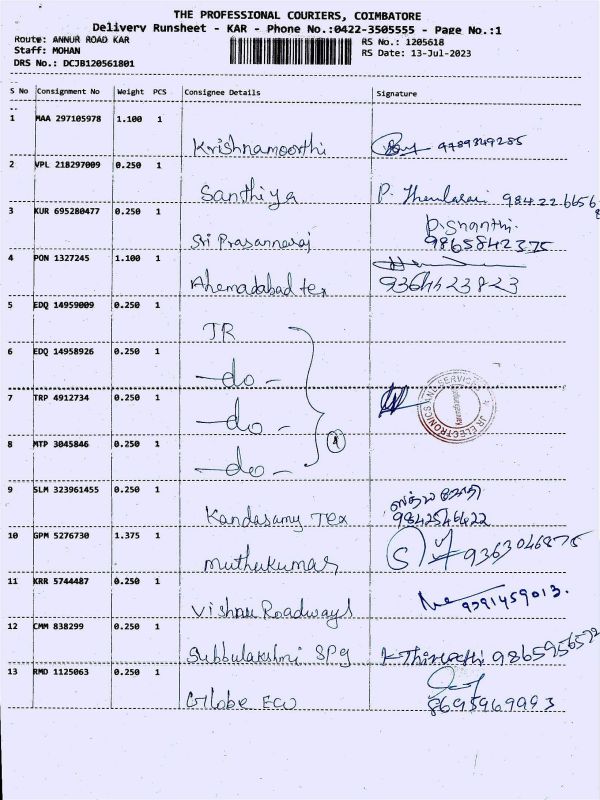 THE PROFESSIONAL COURIERS, COIMBATORE
Delivery Runsheet - KAR - Phone No.:0422-3505555 - Page No.:1
Route: ANNUR ROAD KAR
RS No.: 1205618
Staff: MOHAN
RS Date: 13-Jul-2023
DRS No.: DCJB120561801
S No Consignment No Weight PCS Consignee Details Signature
1 MAA 297105978 1.100 1
Krishnamoorthi 9789349285
2 VPL 218297009 0.250 1
Santhiya P. Thenlarasi 984 22 66568
3 KUR 695280477 0.250 1
P. Shanthi.
Sri Prasannaraj 9865842375
4 PON 1327245 1.100 1
Ahemadabad tex 9364423823
5 EDQ 14959009 0.250 1
JR
6 EDQ 14958926 0.250 1
-do-
7 TRP 4912734 0.250 1
-do-
JR ELECTRONICS AND SERVICES
8 MTP 3045846 0.250 1
-do-
9 SLM 323961455 0.250 1
Kandasamy Tex 9842546422
10 GPM 5276730 1.375 1
muthukumar 9363046875
11 KRR 5744487 0.250 1
Vishnu Roadways 9391459013.
12 CMM 838299 0.250 1
Subbulakshmi Spg 9865956572
13 RMD 1125063 0.250 1
Globe Eco 8695969993